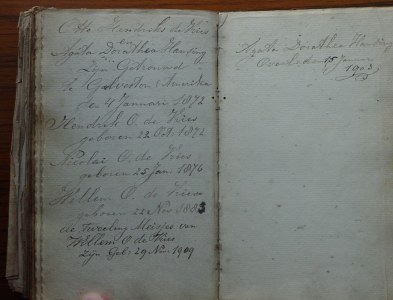 Otto Hendriks de Vries
en
Agata Dorathea Hansing
Zijn Getrouwd
te Galveston Amerika
den 4 Januari 1872
Hendrik O. de Vries
geboren 22 Oct. 1872
Nicolai O. de Vries
geboren 25 Jan. 1876
Willem O. de Vries
geboren 22 Nov 1883
de Tweeling Meisjes van
Willem O de Vries
Zijn Geb. 29 Nov. 1909
Agata Dorathea Hansing
Overleden 15 Januari
1903